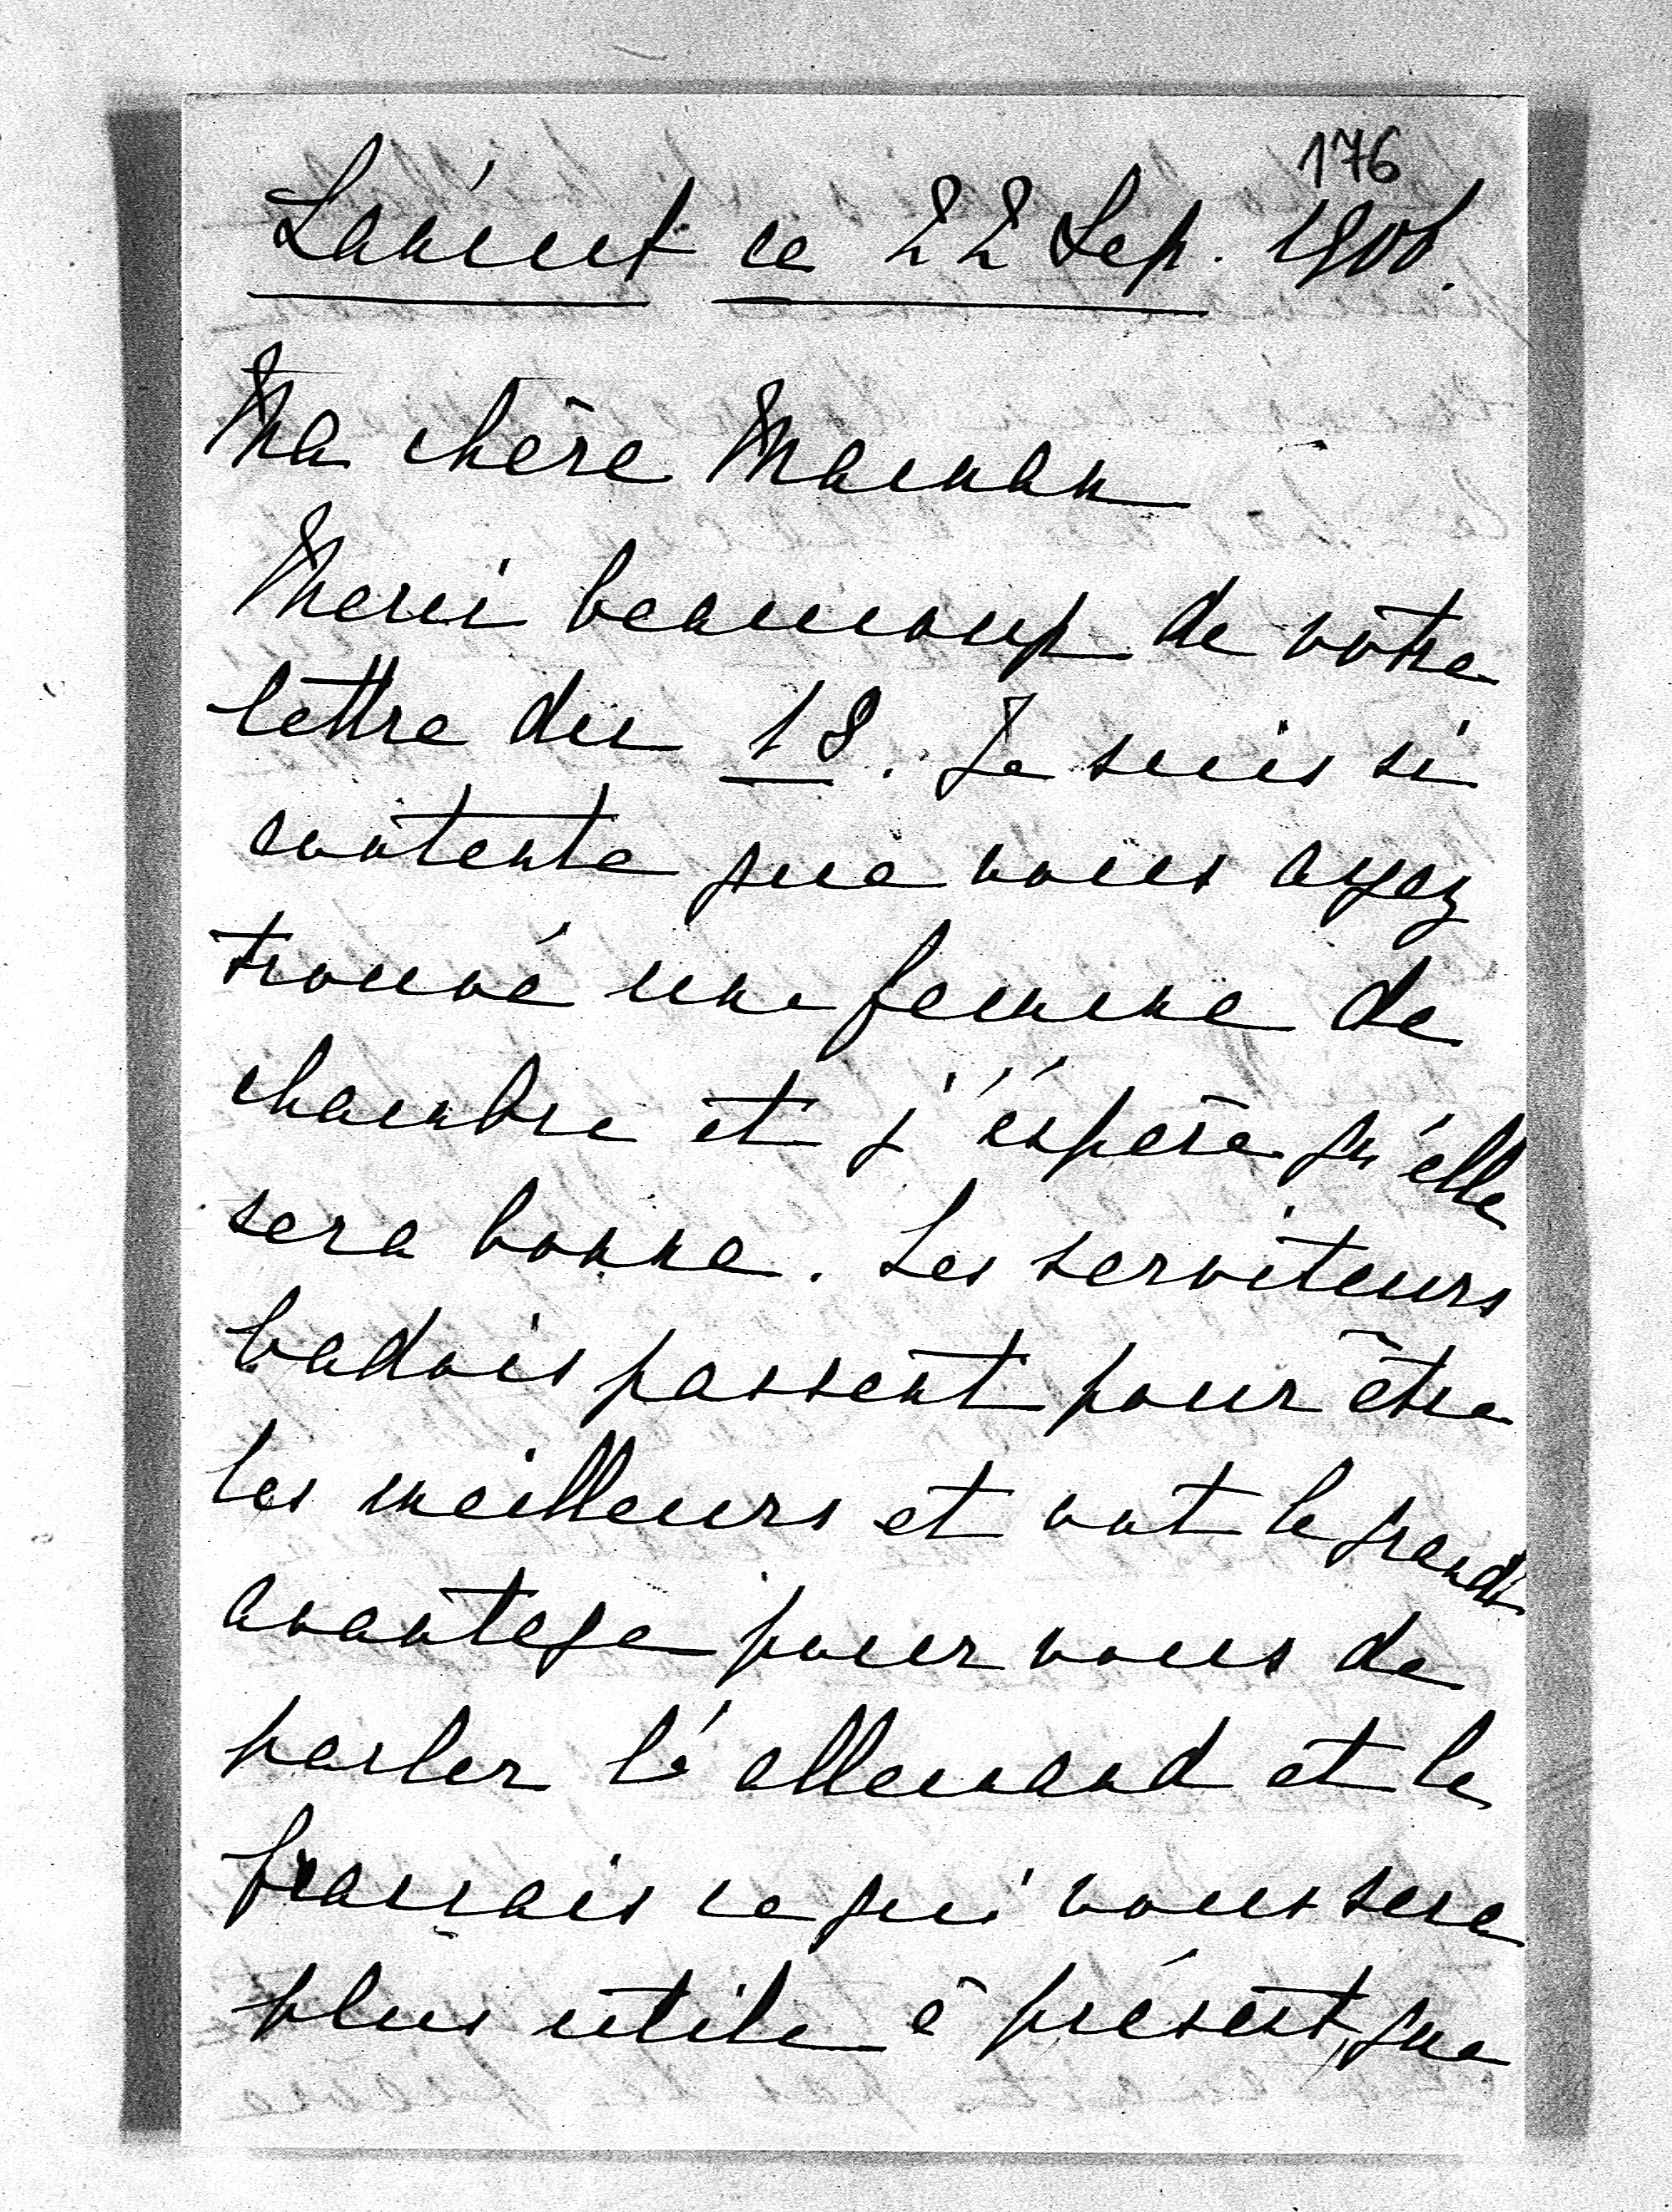 176
Lancut ce 22 Sep. 190
Ma chère Maman
Merci beaucoup de votre
lettre du 18. Je suis si
contente que vous ayez
trouvé une femme de
chambre et j'éspère qu'elle
sera bonne. Les serviteurs
badois passent pour être
les meilleurs et ont le grand
avantage pour vous de
parler l'allemand et le
français ce qui vous sera
plus utile à présent, que